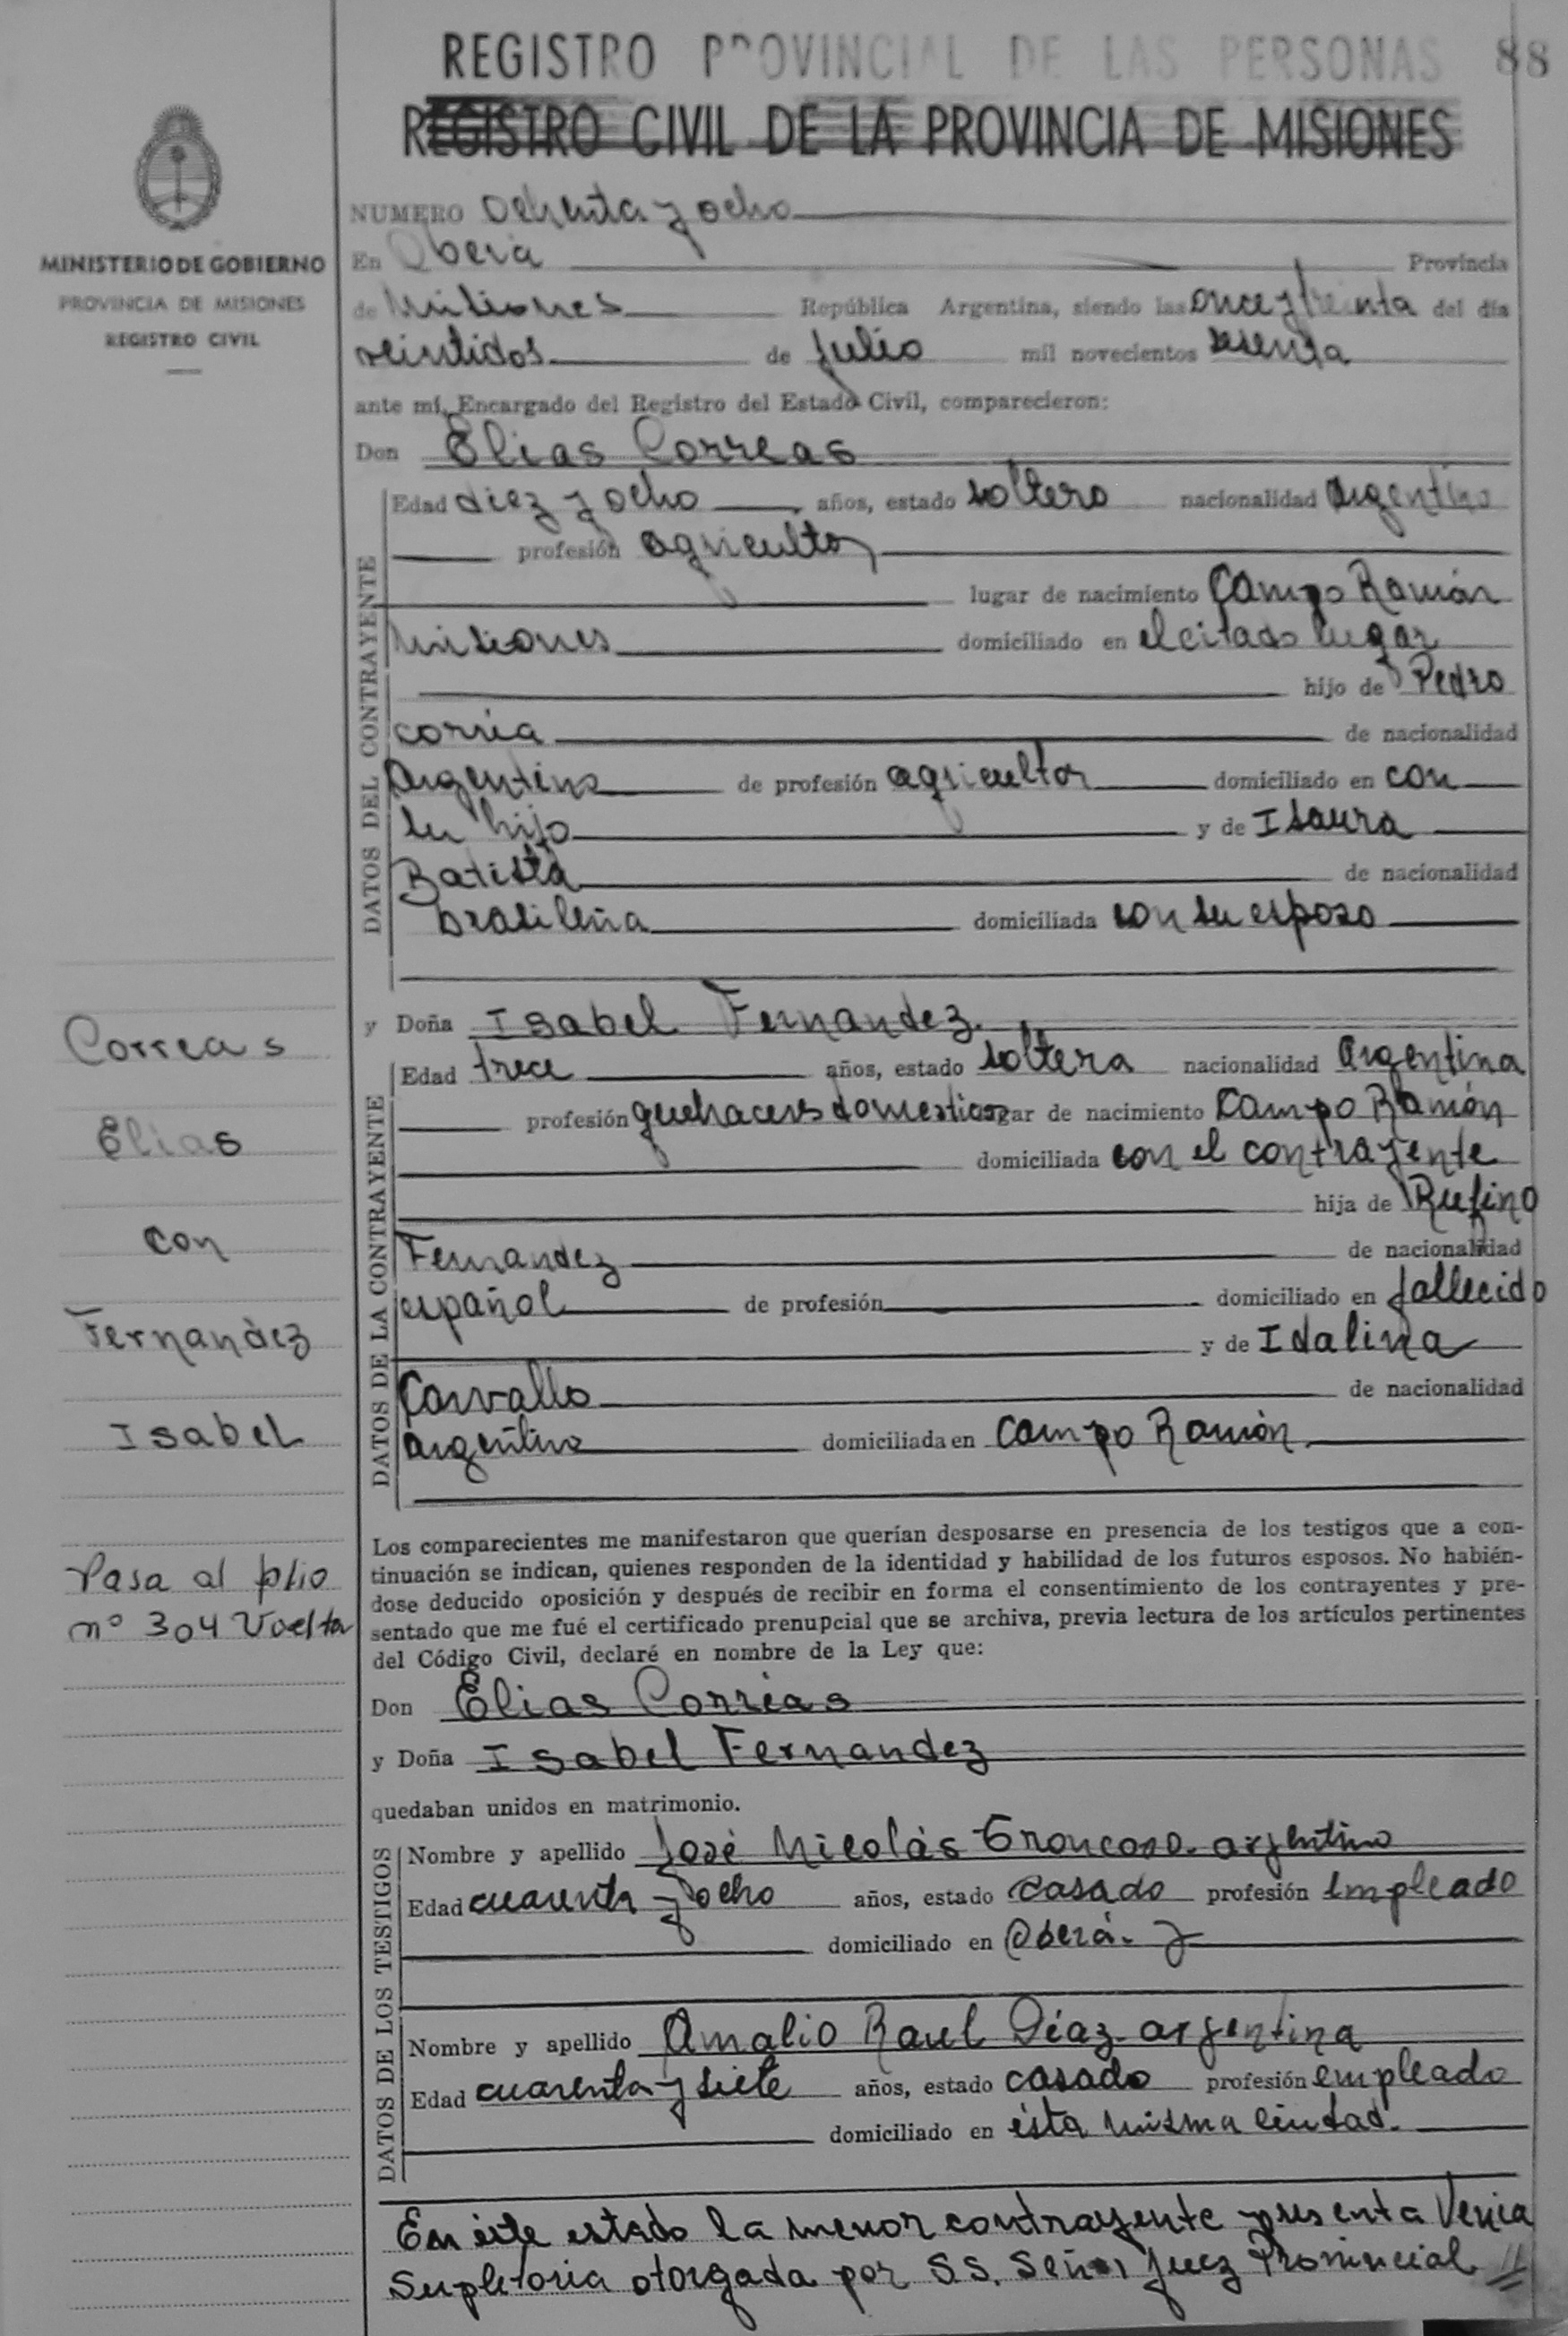 REGISTRO PROVINCIAL DE LAS PERSONAS 88
REGISTRO CIVIL DE LA PROVINCIA DE MISIONES
MINISTERIO DE GOBIERNO
PROVINCIA DE MISIONES
REGISTRO CIVIL
NUMERO Ochenta y ocho
En Oberá Provincia
de Misiones República Argentina, siendo las once y treinta del día
veintidos de Julio mil novecientos sesenta
ante mí, Encargado del Registro del Estado Civil, comparecieron:
Don Elias Correas
DATOS DEL CONTRAYENTE
Edad diez y ocho años, estado soltero nacionalidad Argentino
profesión agricultor
lugar de nacimiento Campo Ramón
Misiones domiciliado en el citado lugar
hijo de Pedro
Correa de nacionalidad
Argentino de profesión agricultor domiciliado en con
su hijo y de Isaura
Batista de nacionalidad
brasileña domiciliada con su esposo
y Doña Isabel Fernandez
DATOS DE LA CONTRAYENTE
Edad trece años, estado soltera nacionalidad Argentina
profesión quehaceres domesticos lugar de nacimiento Campo Ramón
domiciliada con el contrayente
hija de Rufino
Fernandez de nacionalidad
español de profesión domiciliado en fallecido
y de Idalina
Carvallo de nacionalidad
argentina domiciliada en Campo Ramón
Correas
Elias
con
Fernandez
Isabel
Pasa al folio
nº 304 Vuelta
Los comparecientes me manifestaron que querían desposarse en presencia de los testigos que a con-
tinuación se indican, quienes responden de la identidad y habilidad de los futuros esposos. No habién-
dose deducido oposición y después de recibir en forma el consentimiento de los contrayentes y pre-
sentado que me fué el certificado prenupcial que se archiva, previa lectura de los artículos pertinentes
del Código Civil, declaré en nombre de la Ley que:
Don Elias Correas
y Doña Isabel Fernandez
quedaban unidos en matrimonio.
DATOS DE LOS TESTIGOS
Nombre y apellido José Nicolás Troncoso. argentino
Edad cuarenta y ocho años, estado casado profesión empleado
domiciliado en Oberá. y
Nombre y apellido Amalio Raul Díaz. argentina
Edad cuarenta y siete años, estado casado profesión empleado
domiciliado en ésta misma ciudad.
En éste estado la menor contrayente presenta Venia
Supletoria otorgada por S.S. Señor Juez Provincial //